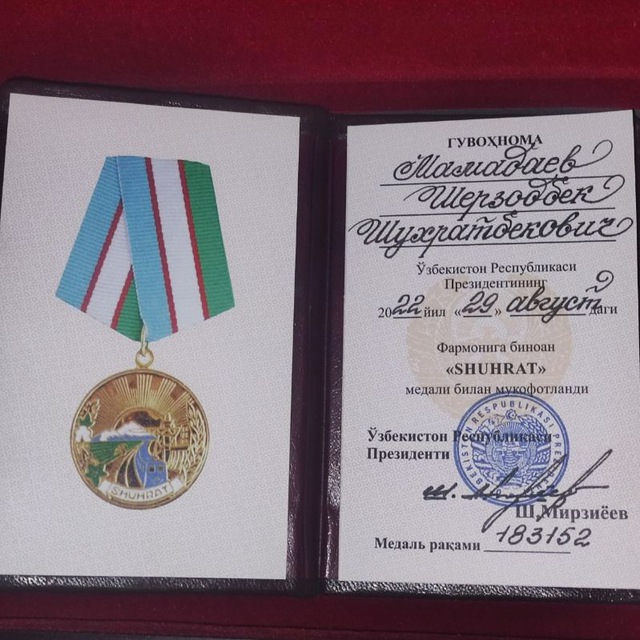 SHUHRAT
ГУВОҲНОМА
Мамадаев
Шерзодбек
Шухратбекович
Ўзбекистон Республикаси
Президентининг
2022 йил «29» августдаги
Фармонига биноан
«SHUHRAT»
медали билан мукофотланди
Ўзбекистон Республикаси
Президенти
Ш.Мирзиёев
Медаль рақами 183152